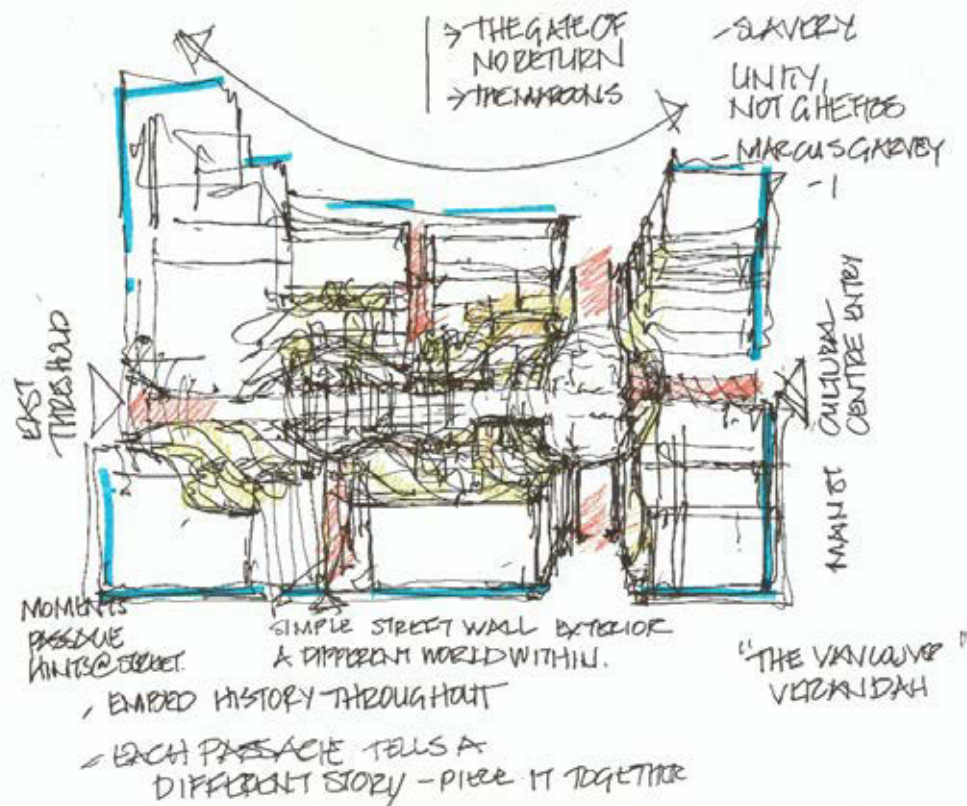 → THE GATE OF
NO RETURN
→ THE MAROONS
- SLAVERY
UNITY,
NOT GHETTOS
- MARCUS GARVEY
- 1
EAST
THRESHOLD
CULTURAL
CENTRE ENTRY
MAIN ST
MOMENTS
PASSAGE
HINTS @ STREET.
SIMPLE STREET WALL EXTERIOR
A DIFFERENT WORLD WITHIN.
"THE VANCOUVER"
VERANDAH
- EMBED HISTORY THROUGHOUT
- EACH PASSAGE TELLS A
DIFFERENT STORY - PIECE IT TOGETHER